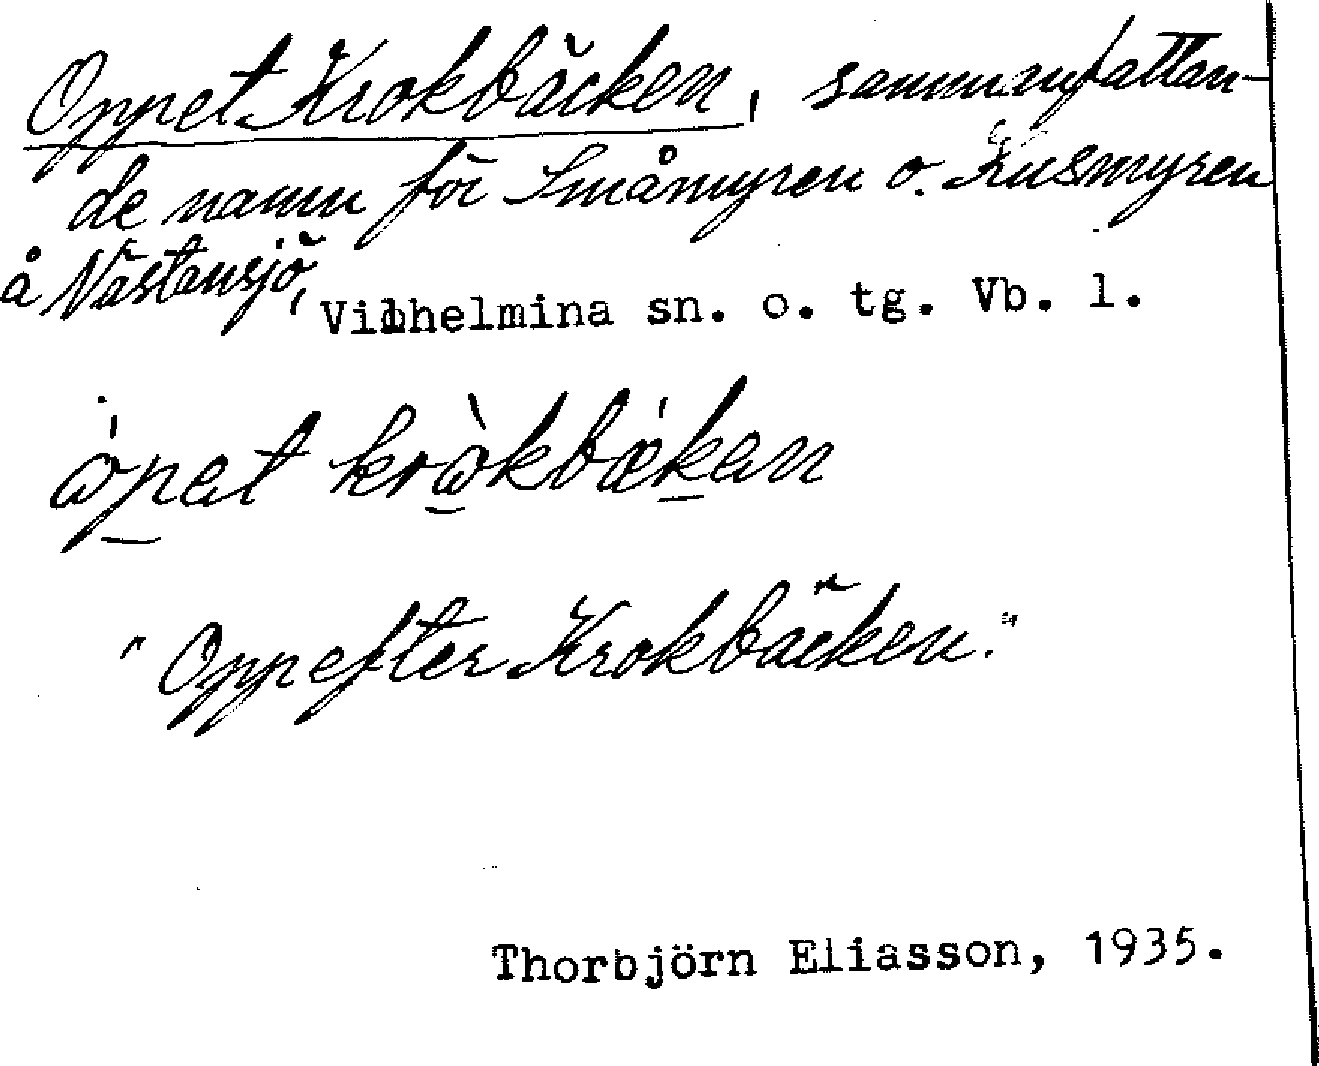 Oppet Krokbäcken, sammanfattan-
de namn för Småmyren o. Kusmyren
å Västansjö, Vilhelmina sn. o. tg. Vb. l.
krò̱kbæ̍ḵən
"Opp efter Krokbäcken."
Thorbjörn Eliasson, 1935.